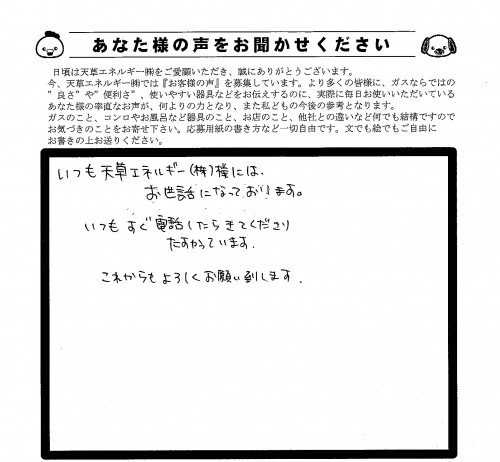 あなた様の声をお聞かせください
日頃は天草エネルギー㈱をご愛顧いただき、誠にありがとうございます。
今、天草エネルギー㈱では『お客様の声』を募集しています。より多くの皆様に、ガスならではの
”良さ”や”便利さ”、使いやすい器具などをお伝えするのに、実際に毎日お使いいただいている
あなた様の率直なお声が、何よりの力となり、また私どもの今後の参考となります。
ガスのこと、コンロやお風呂など器具のこと、お店のこと、他社との違いなど何でも結構ですので
お気づきのことをお寄せ下さい。応募用紙の書き方など一切自由です。文でも絵でもご自由に
お書きの上お送りください。
いつも天草エネルギー(株)様には、
お世話になっております。
いつもすぐ電話したらきてくださり
たすかっています.
これからもよろしくお願い致します.